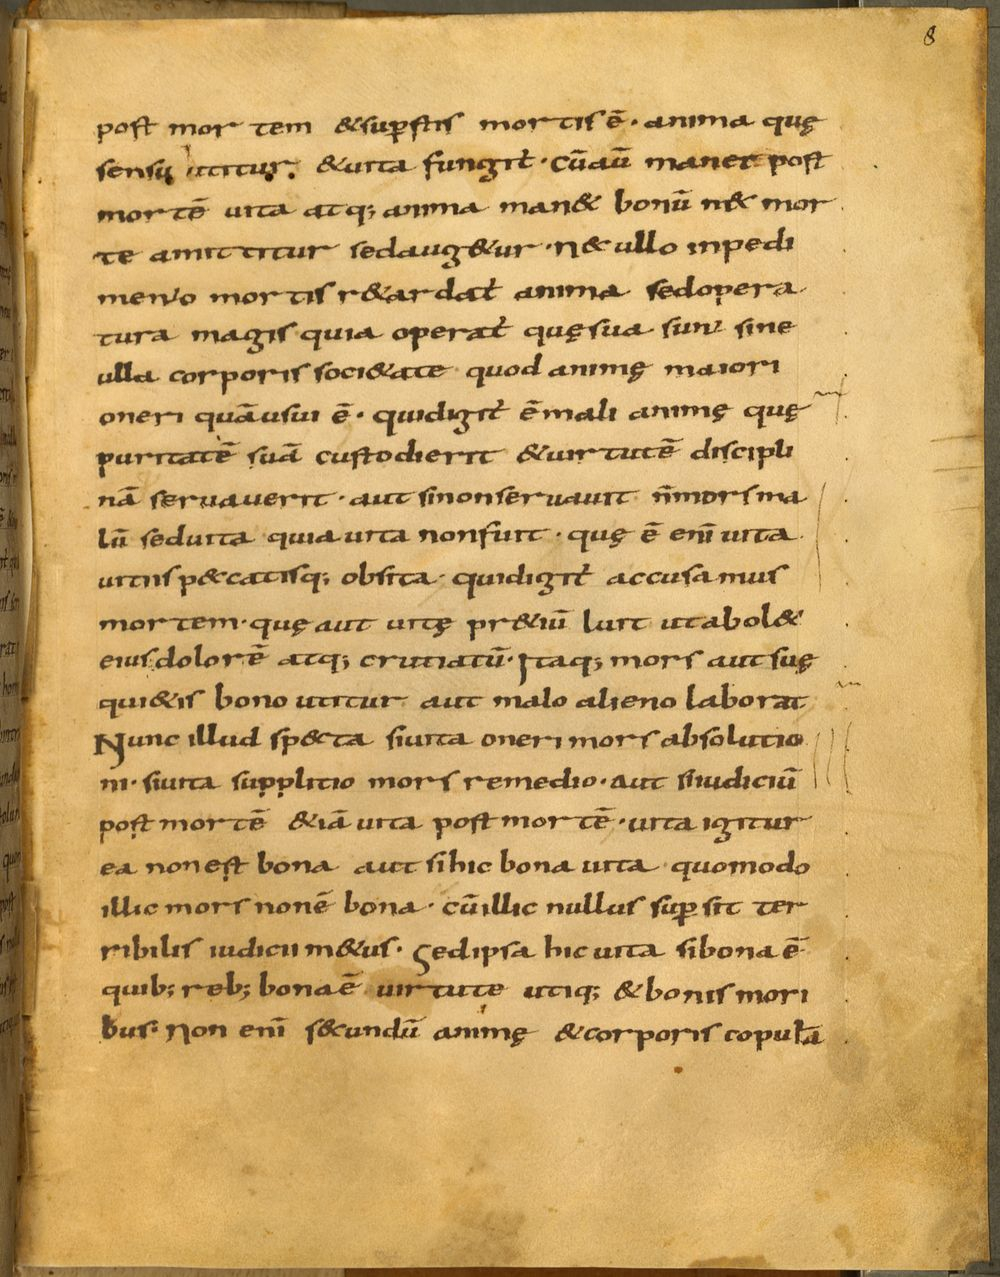 8
post mortem &sup̄stis mortis ē· anima quę
sensu utitur, &uita fungit̄· cūaū manet post
mortē uita atq; anima man& bonū n& mor
te amittitur sedaug&ur· n& ullo inpedi
mento mortis r&ardat̄ anima sedopera
tura magis quia operat̄ quęsua sunt sine
ulla corporis soci&ate quod animę maiori
oneri quāusui ē· quidigit̄ ēmali animę quę
puritatē suā custodierit &uirtutē discipli
nā servaverit· aut sinonservavit n̄morsma
lū seduita quia uita nonfuit· quę ē enī uita
uitiis p&catisq; obsita· quidigit̄ accusamus
mortem· quę aut uitę pr&iū luit utabol&
eius dolorē atq; crutiatū· Itaq; mors aut suę
qui&is bono utitur aut malo alieno laborat
Nunc illud sp&ta siuita oneri mors absolutio
ni· siuita supplitio mors remedio· aut siiudiciū
post mortē &iā uita post mortē· uita igitur
ea non est bona aut sihic bona uita quomodo
illic mors nonē bona· cūillic nullus sup̄sit ter
ribilis iudicii m&us· Sedipsa hic uita sibona ē
quib; reb; bona ē uirtute utiq; &bonis mori
bus· Non enī s&undū animę &corporis copulā